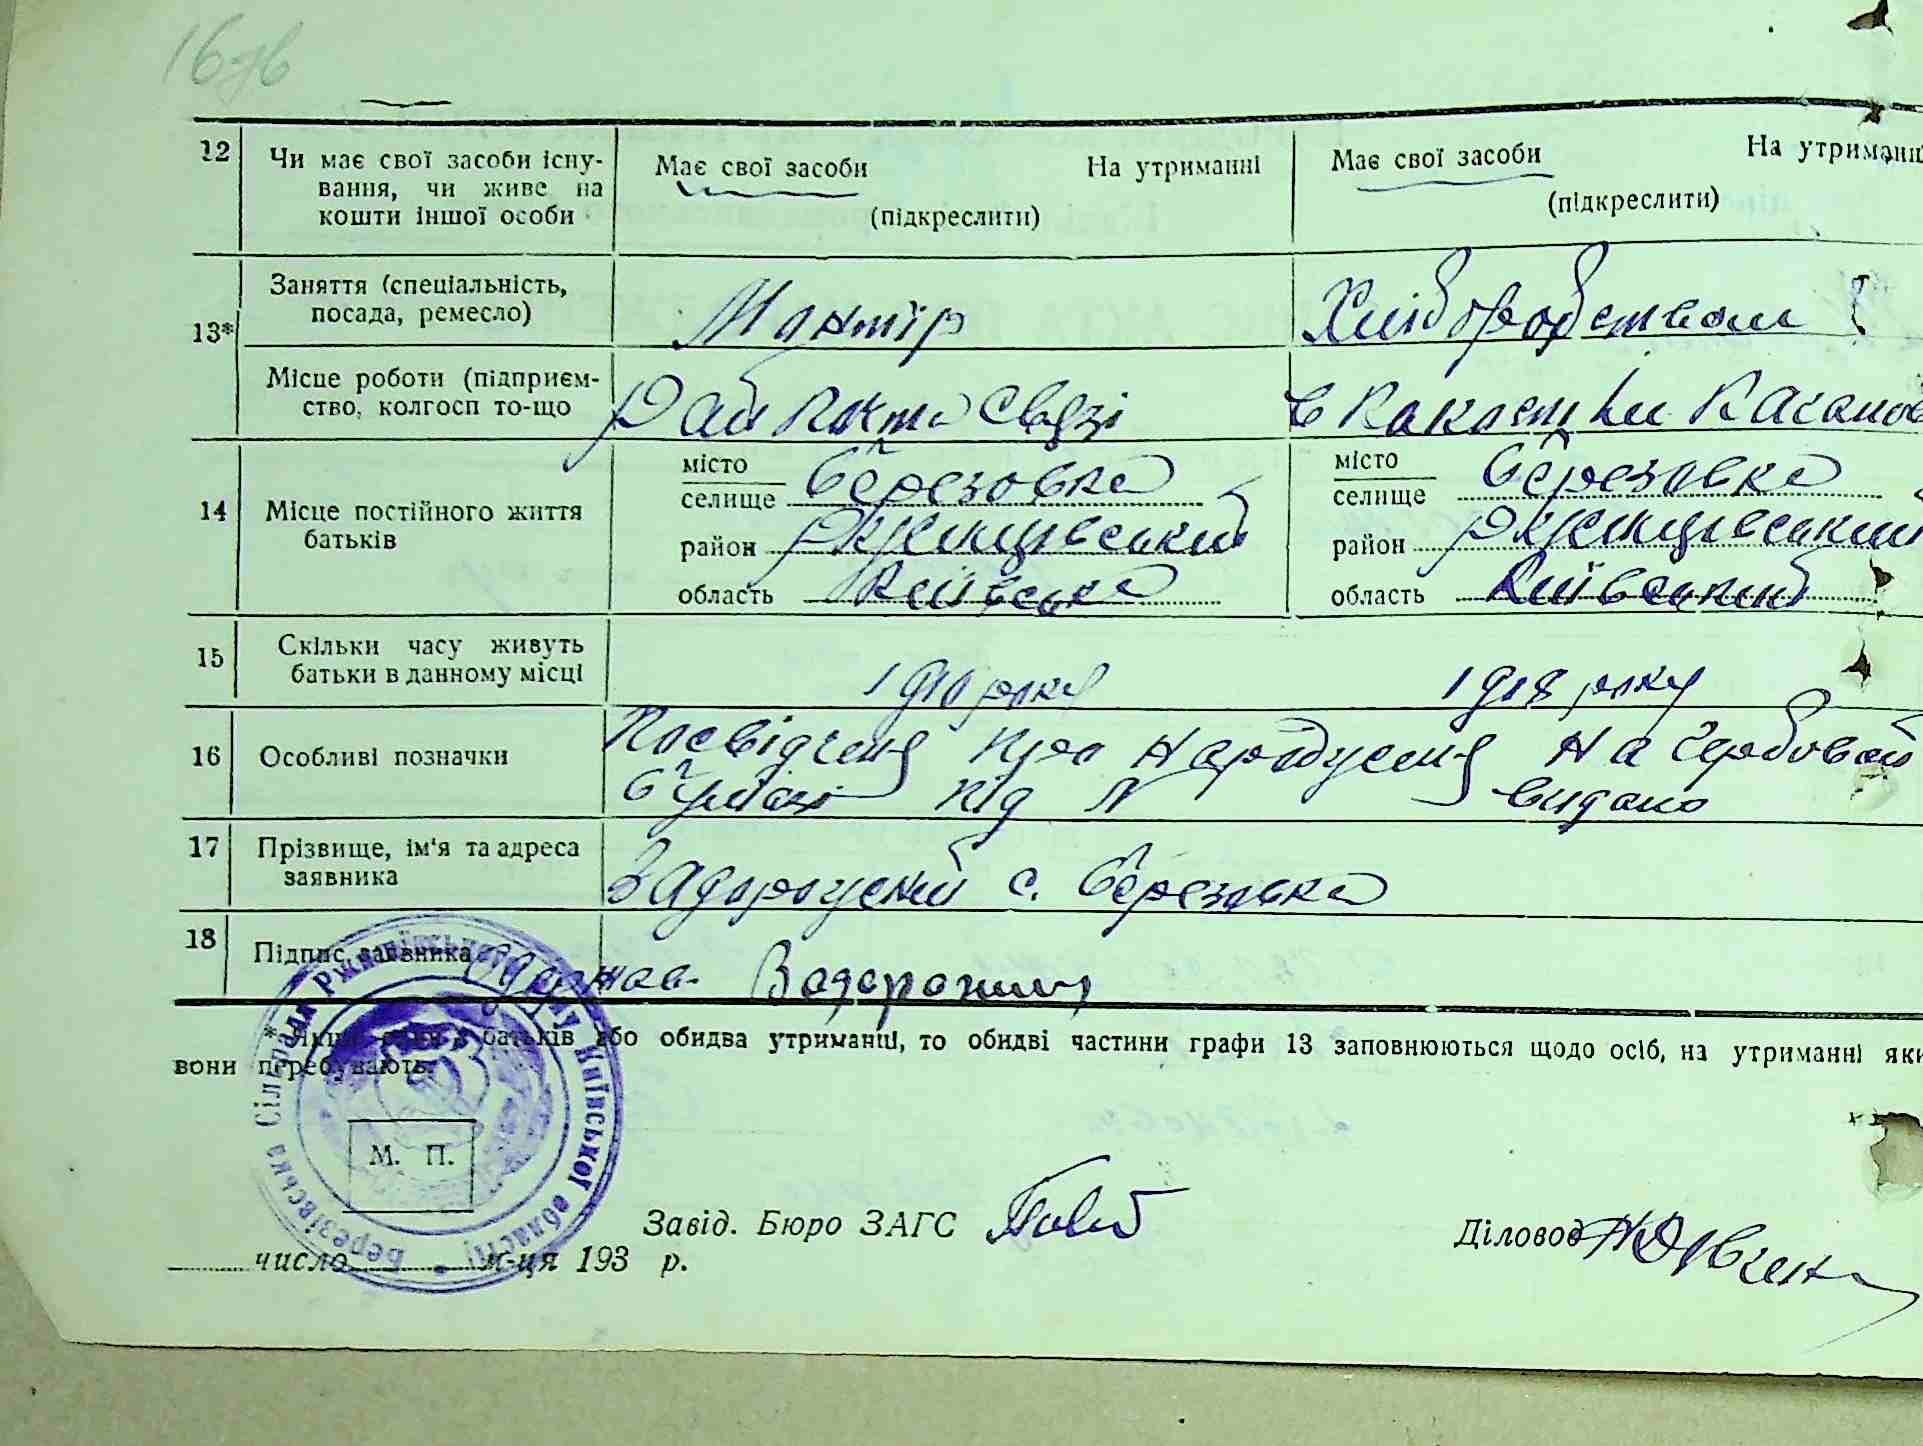 12 Чи має свої засоби існу-
вання, чи живе на
кошти іншої особи
Має свої засоби На утриманні
(підкреслити)
Має свої засоби На утриманні
(підкреслити)
13*
Заняття (спеціальність,
посада, ремесло)
Монтір
Хліборобством
Місце роботи (підприєм-
ство, колгосп то-що
Раб
14 Місце постійного життя
батьків
місто
селище Березовка
район Ржищевський
область Київська
місто
селище Березовка
район Ржищевський
область Київський
15 Скільки часу живуть
батьки в данному місці
1910 року 1918 року
16 Особливі позначки
Посвідченя про народженя на гербовай
бумазі під N видано
17 Прізвище, ім'я та адреса
заявника
Задорожний с. Березовка
18 Підпис заявника
Задорожний
* Якщо один з батьків або обидва утриманці, то обидві частини графи 13 заповнюються щодо осіб, на утриманні яки
вони перебувають.
Березівська Сільрада Ржищівського р-ну Київської області
М. П.
Завід. Бюро ЗАГС
Діловод
число м-ця 193 р.